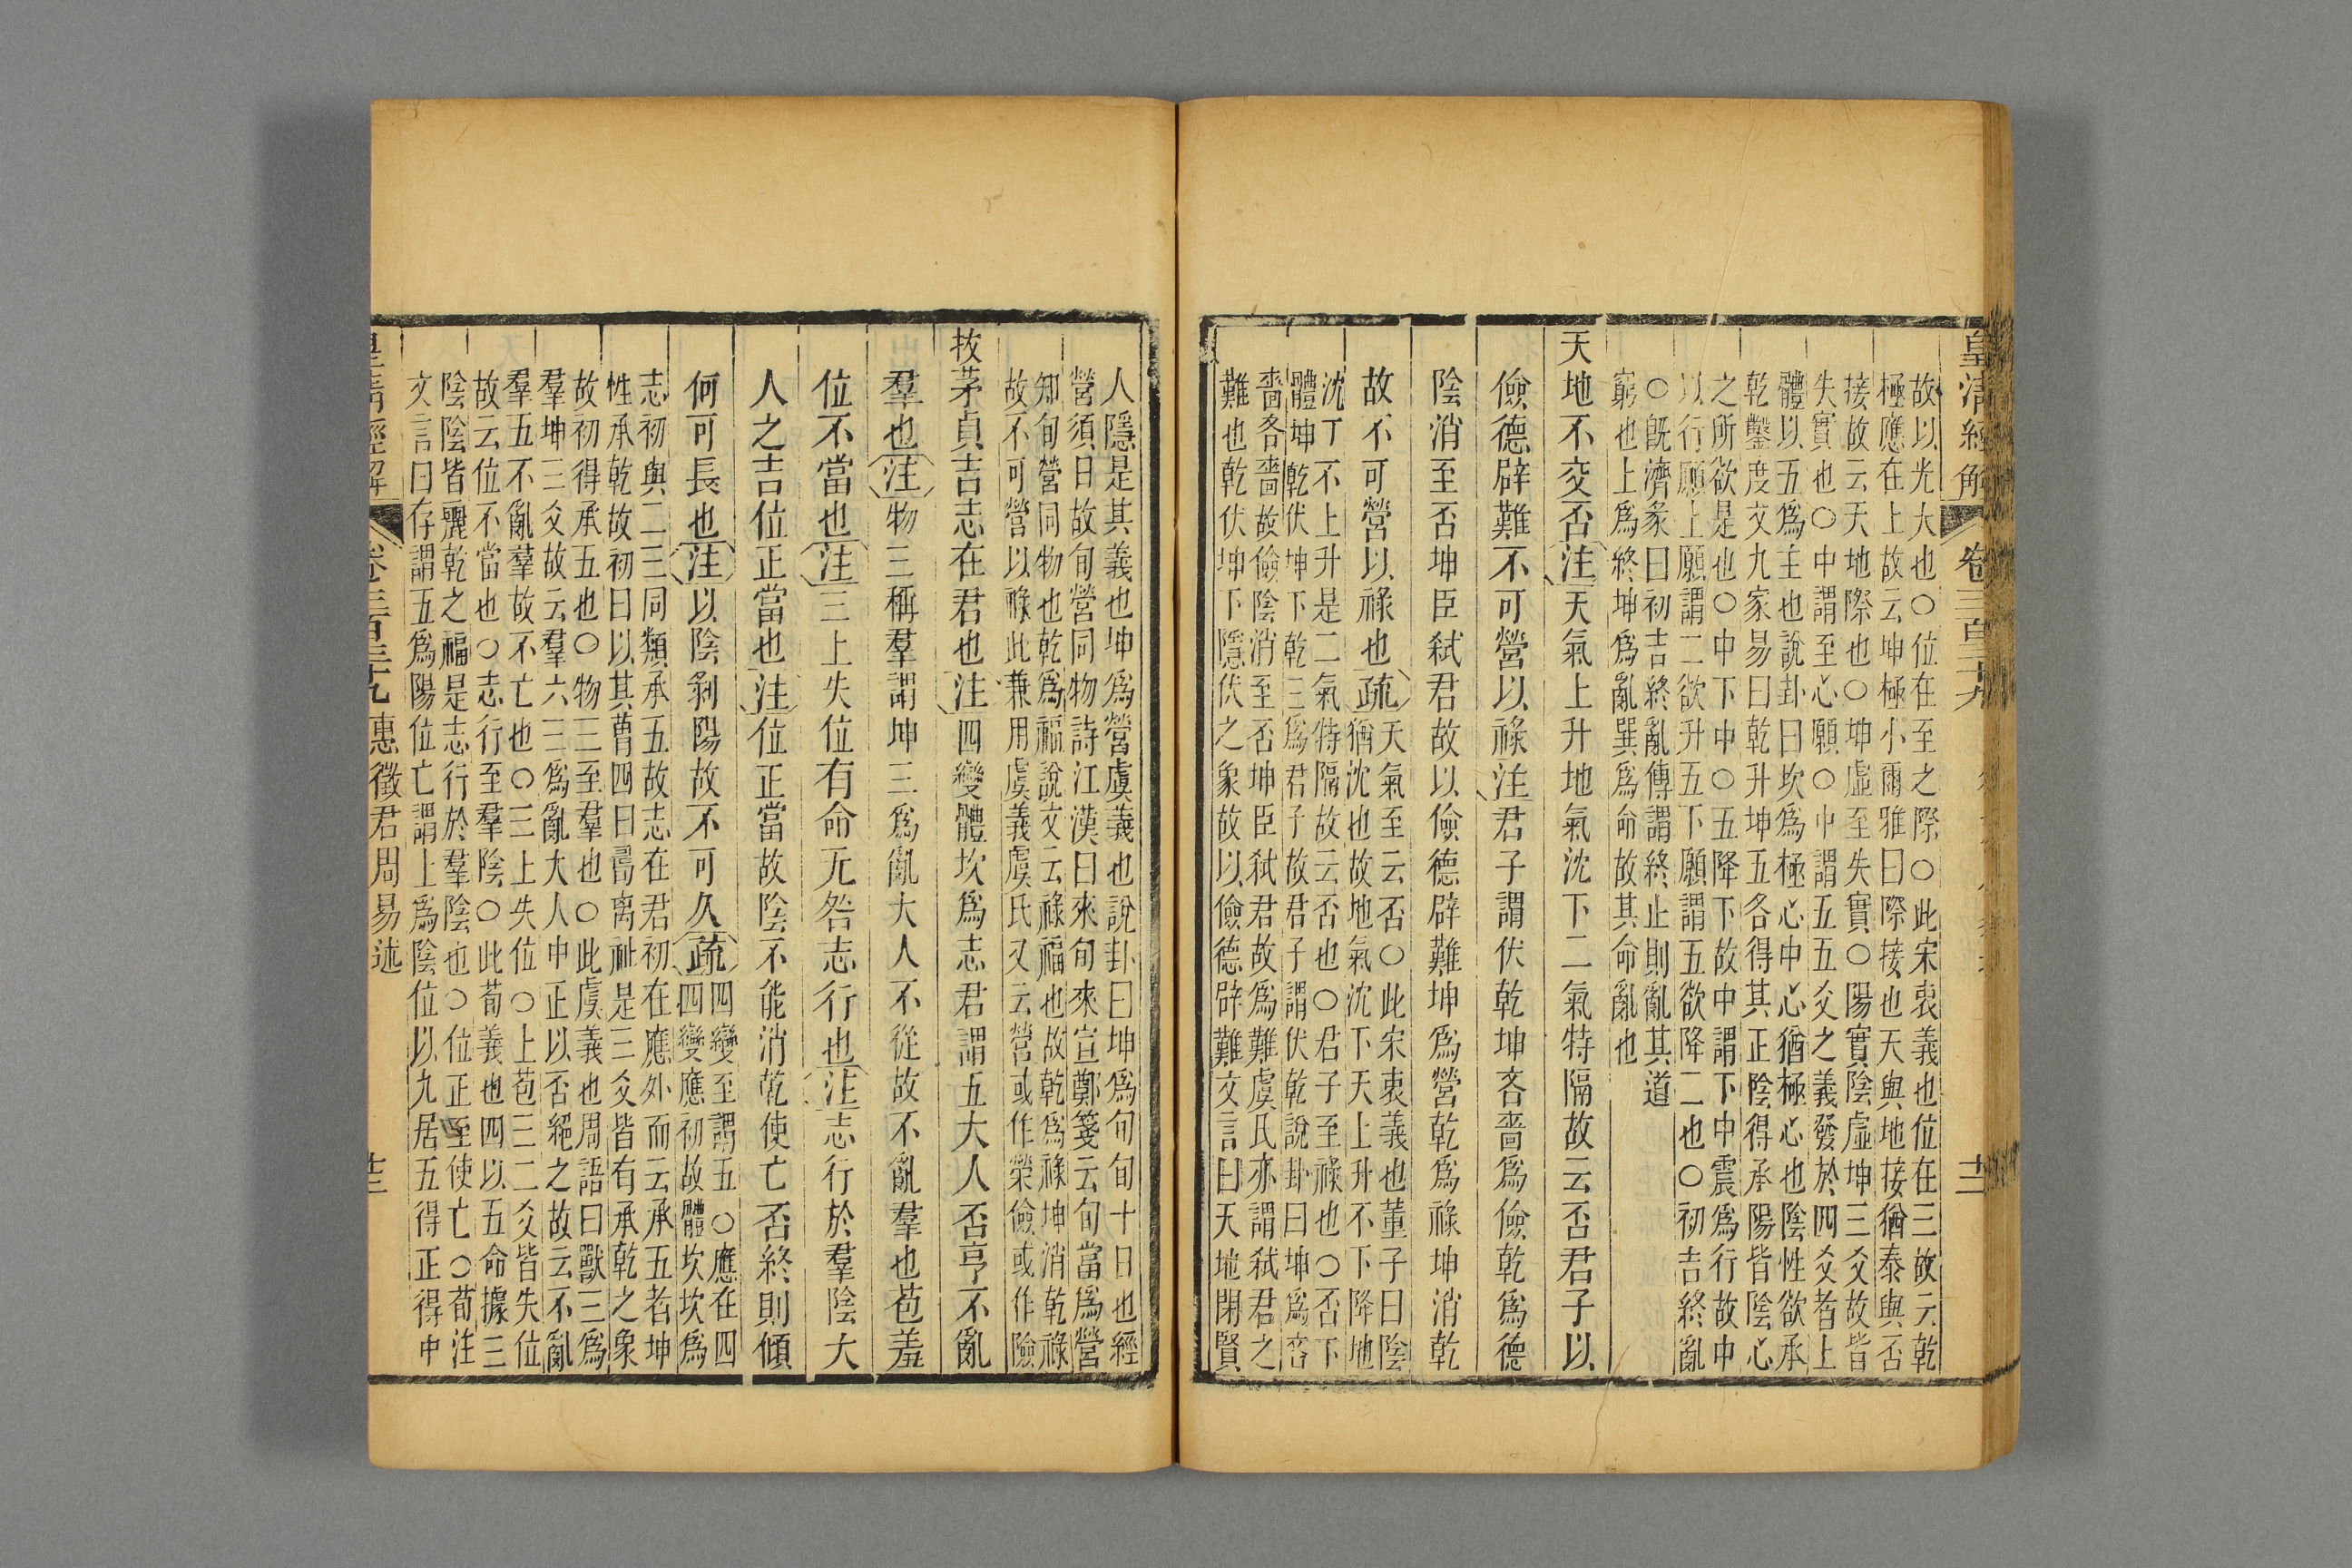 皇清經解 卷三百三十九 十二
故以光大也○位在至之際○此宋衷義也位在三故云乾
極應在上故云坤極小爾雅曰際接也天與地接猶泰與否
接故云天地際也○坤虛至失實○陽實陰虛坤三爻故皆
失實也○中謂至心願○中謂五五爻之義發於四爻者上
體以五爲主也說卦曰坎爲極心中心猶極心也陰性欲承
乾鑿度文九家易曰乾升坤五各得其正陰得承陽皆陰心
之所欲是也○中下中○五降下故中謂下中震爲行故中
以行願上願謂二欲升五下願謂五欲降二也○初吉終亂
○旣濟彖曰初吉終亂傳謂終止則亂其道
窮也上爲終坤爲亂巽爲命故其命亂也
天地不交否注天氣上升地氣沈下二氣特隔故云否君子以
儉德辟難不可營以祿注君子謂伏乾坤吝嗇爲儉乾爲德
陰消至否坤臣弑君故以儉德辟難坤爲營乾爲祿坤消乾
故不可營以祿也疏
天氣至云否○此宋衷義也董子曰陰
猶沈也故地氣沈下天上升不下降地
沈丁不上升是二氣特隔故云否也○君子至祿也○否下
體坤乾伏坤下乾三爲君子故君子謂伏乾說卦曰坤爲吝
嗇吝嗇故儉陰消至否坤臣弑君故爲難虞氏亦謂弑君之
難也乾伏坤下隱伏之象故以儉德辟難文言曰天地閉賢
人隱是其義也坤爲營虞義也說卦曰坤爲旬旬十日也經
營須日故旬營同物詩江漢曰來旬來宣鄭箋云旬當爲營
知旬營同物也乾爲福說文云祿福也故乾爲祿坤消乾祿
故不可營以祿此兼用虞義虞氏又云營或作榮儉或作險
拔茅貞吉志在君也注四變體坎爲志君謂五大人否亨不亂
羣也注物三稱羣謂坤三爲亂大人不從故不亂羣也苞羞
位不當也注三上失位有命无咎志行也注志行於羣陰大
人之吉位正當也注位正當故陰不能消乾使亡否終則傾
何可長也注以陰剝陽故不可久疏
四變至謂五○應在四
四變應初故體坎坎爲
志初與二三同類承五故志在君初在應外而云承五者坤
性承乾故初曰以其曹四曰疇离祉是三爻皆有承乾之象
故初得承五也○物三至羣也○此虞義也周語曰獸三爲
羣坤三爻故云羣六三爲亂大人中正以否絕之故云不亂
羣五不亂羣故不亡也○三上失位○上苞三二爻皆失位
故云位不當也○志行至羣陰○此荀義也四以五命據三
陰陰皆麗乾之福是志行於羣陰也○位正至使亡○荀注
文言曰存謂五爲陽位亡謂上爲陰位以九居五得正得中
皇清經解 卷三百三十九 惠徵君周易述 十三